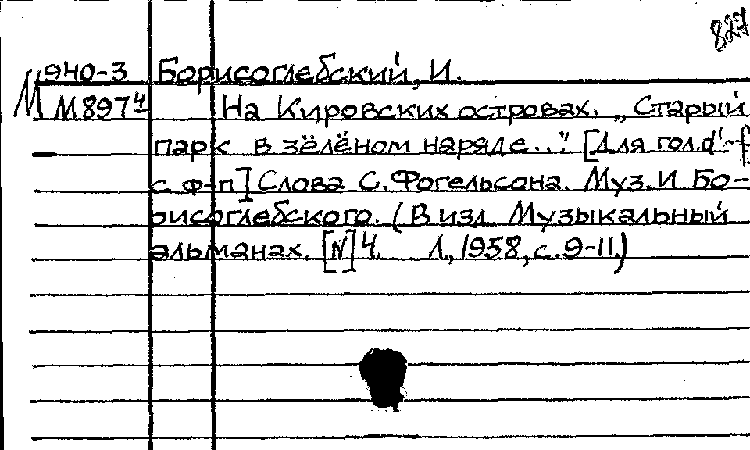 827
940-3 Борисоглебский, И.
М М897⁴ На Кировских островах. „Старый
парк в зелёном наряде..." [Для гол. d'-f
с ф-п] Слова С. Фогельсона. Муз. И Бо-
рисоглебского. (В изд Музыкальный
альманах. [N] 4. Л, 1958, с. 9-11)